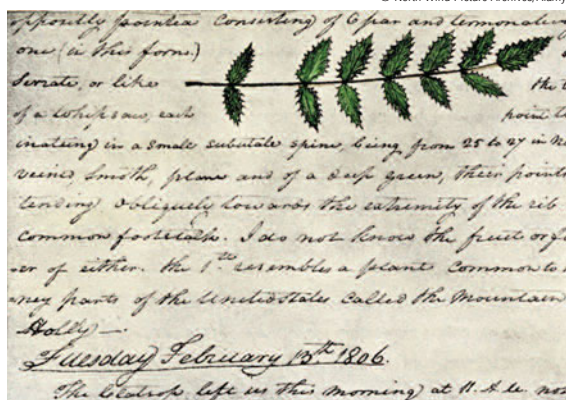 © North Wind Picture Archives/Alamy
oppositly pointed consisting of 6 par and termonateing
one (in this form.)
Serate, or like the
of a whipsaw, each point
inateing in a small subulate spine, being from 25 to 27 in
veined, smoth, plane and of a deep green, their points
tending obliquely towards the extremity of the rib
common footstalk. I do not know the fruit or
er of either. the 1st resembles a plant common to
ney parts of the United states called the Mountain
Holly —
Tuesday February 13th 1806.
The Clatsop left us this morning at 11. A.M. not